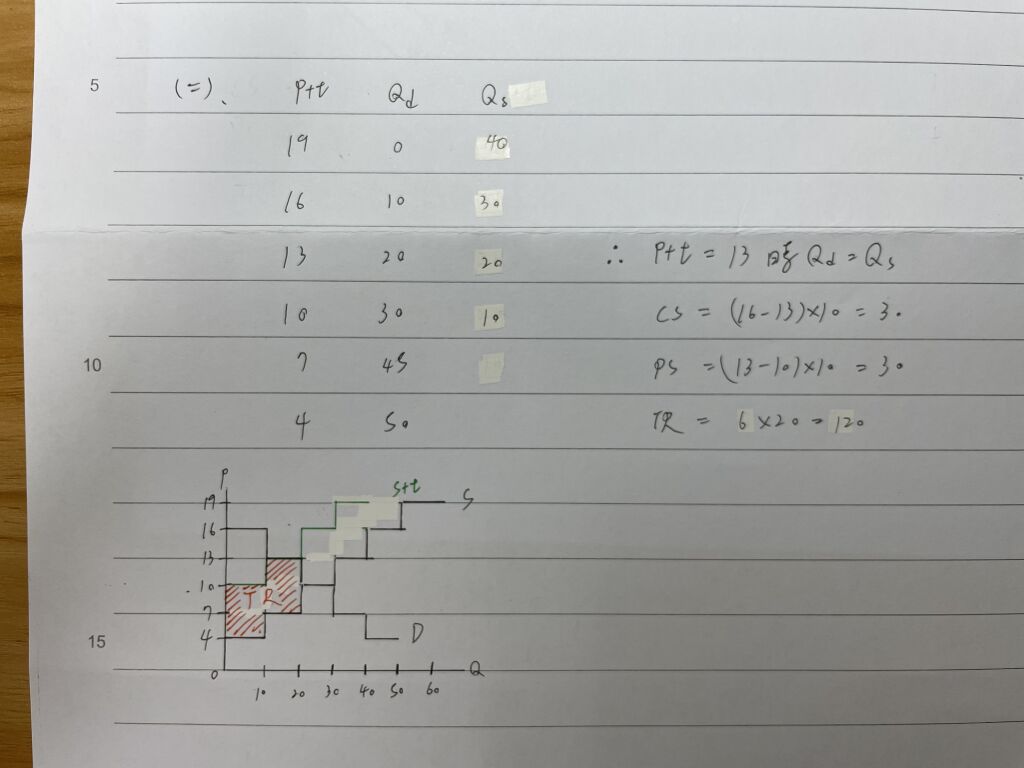 5 (二)、 P+t Qd Qs
19 0 40
16 10 30
13 20 20 ∴ P+t = 13 時 Qd = Qs
10 30 10 CS = (16-13)×10 = 30
10 7 45 PS = (13-10)×10 = 30
4 50 TR = 6×20 = 120
P
19 S+t S
16
13
10 TR
7
15 4 D
0 Q
10 20 30 40 50 60